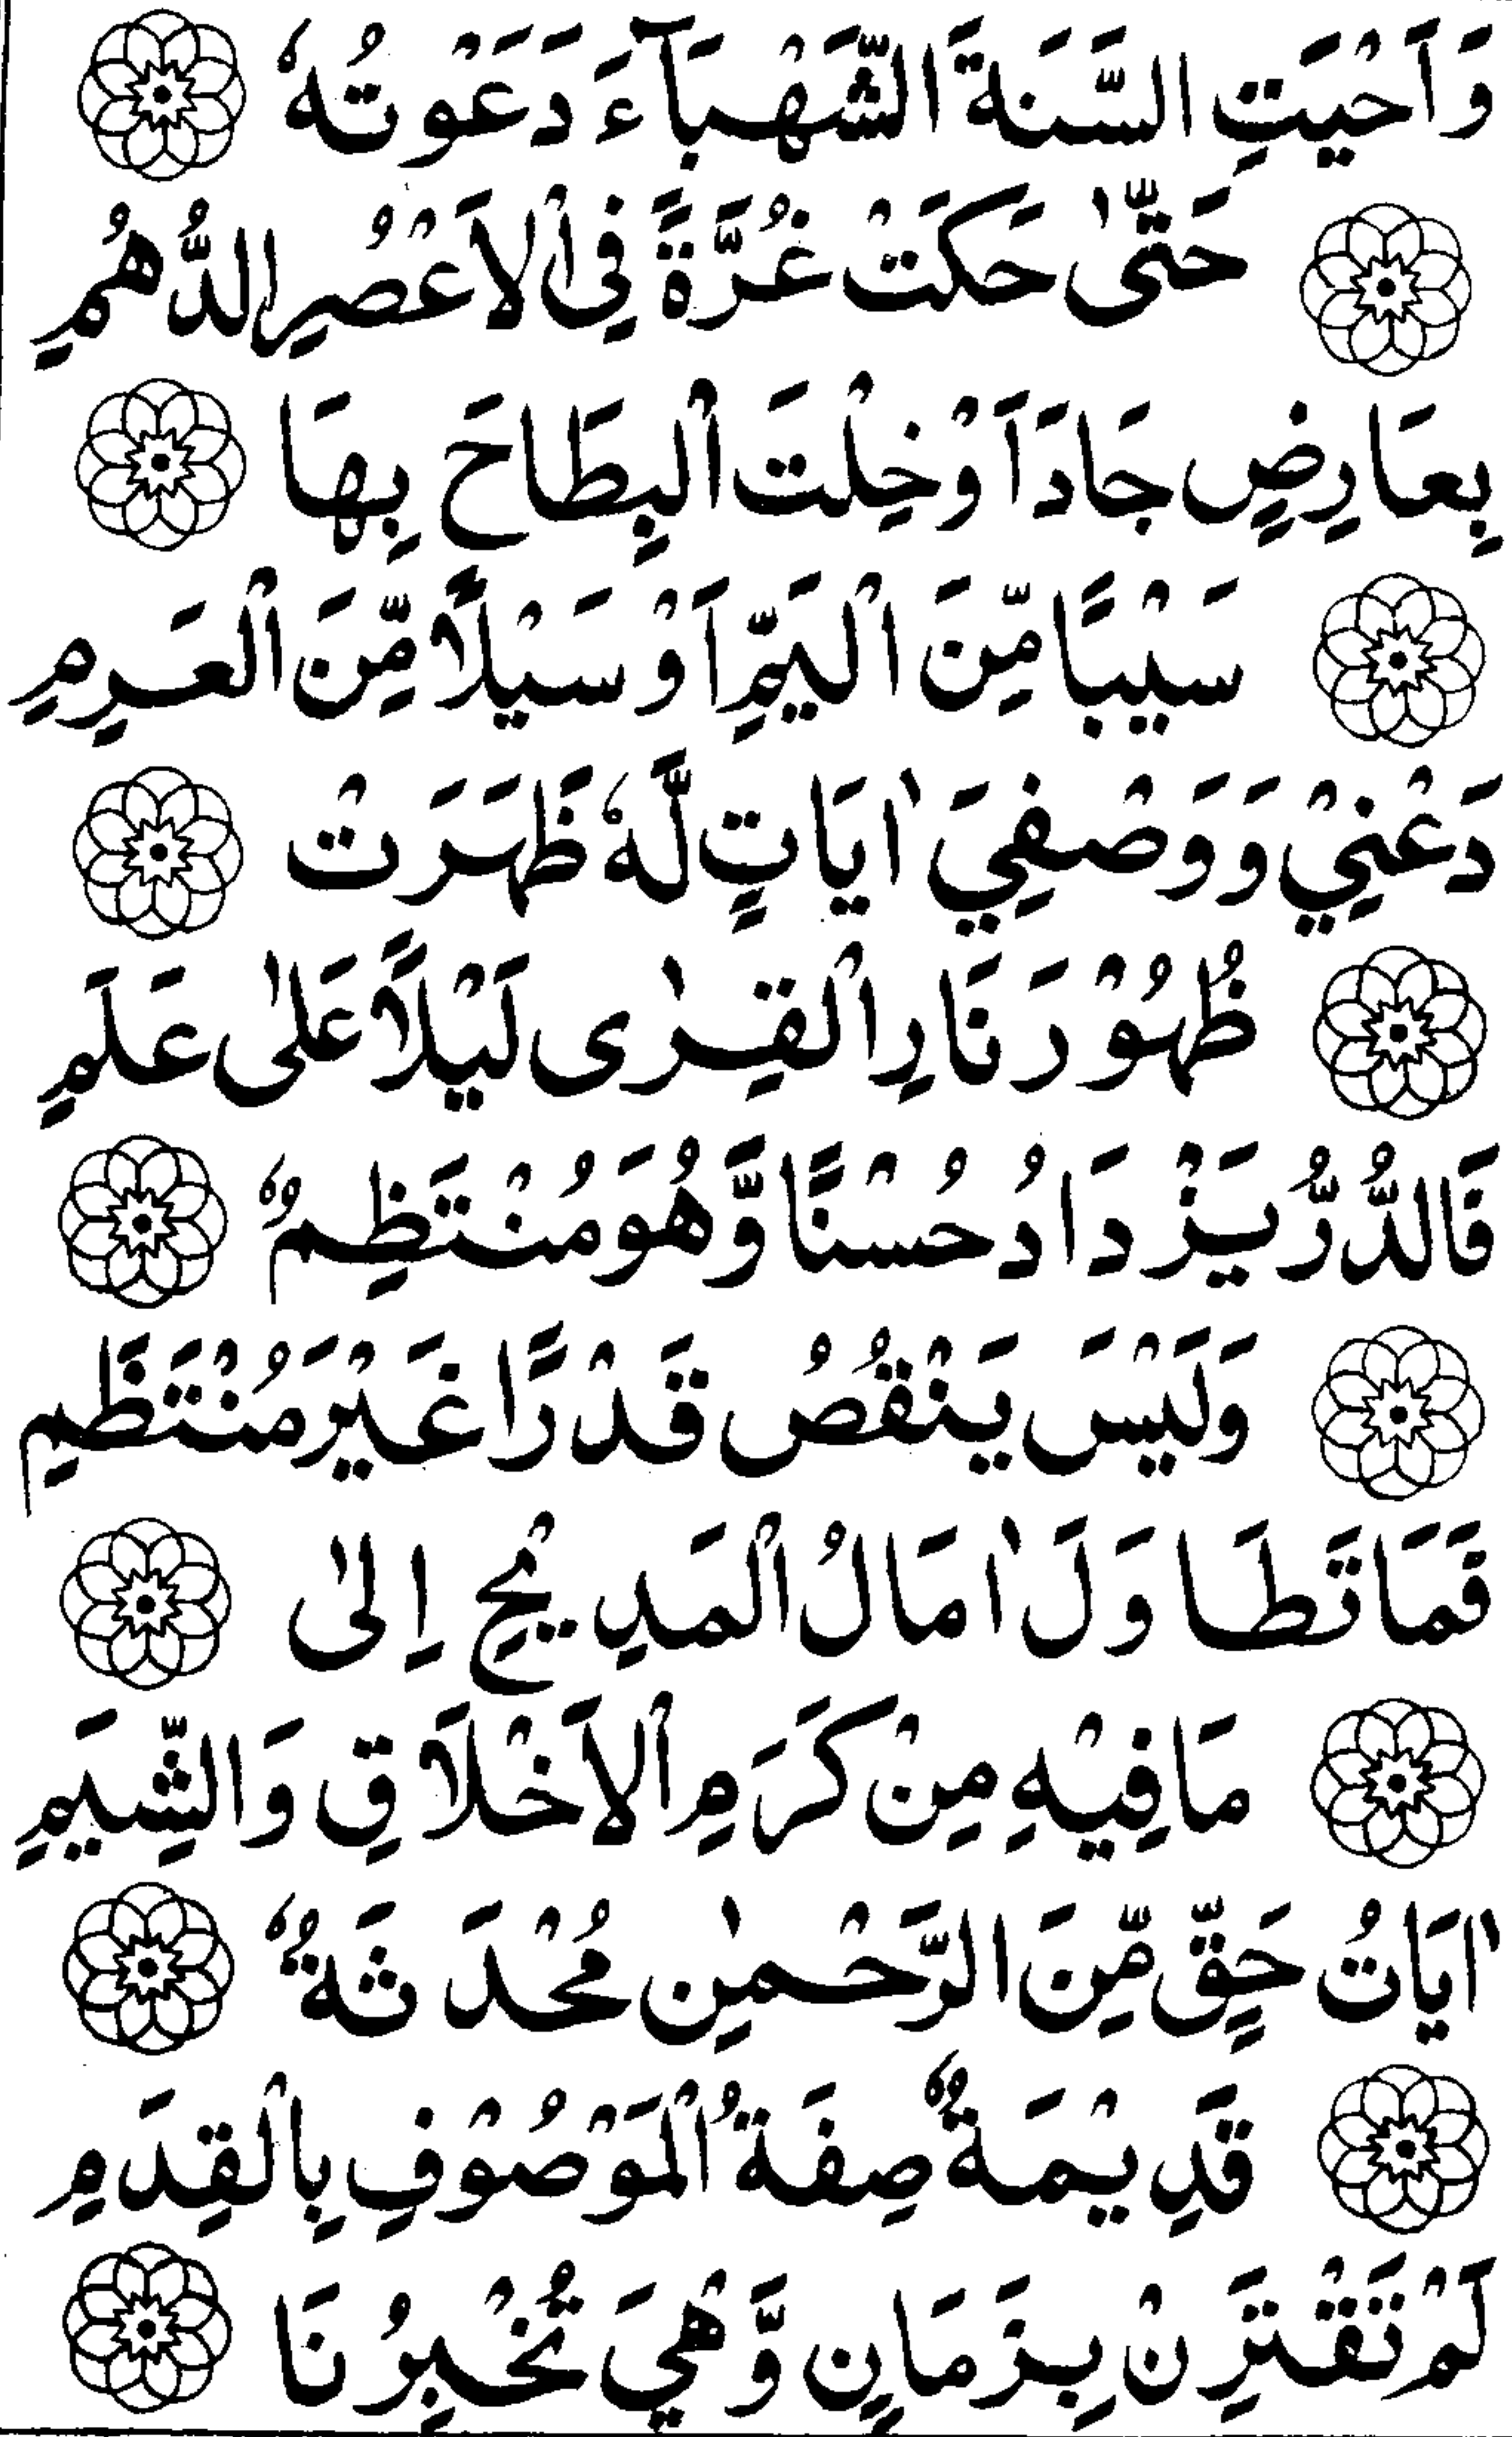 وَاَحْيَتِ السَّنَةَ الشَّهْبَآءَ دَعْوَتُهٗ
حَتّٰى حَكَتْ غُرَّةً فِى الْاَعْصُرِ الدُّهُمِ
بِعَارِضٍ جَادَ اَوْ خِلْتَ الْبِطَاحَ بِهَا
سَيْبًا مِّنَ الْيَمِّ اَوْ سَيْلًا مِّنَ الْعَرِمِ
دَعْنِيْ وَوَصْفِيَ اٰيَاتٍ لَّهٗ ظَهَرَتْ
ظُهُوْرَ نَارِ الْقِرٰى لَيْلًا عَلٰى عَلَمِ
فَالدُّرُّ يَزْدَادُ حُسْنًا وَّهُوَ مُنْتَظِمٌ
وَلَيْسَ يَنْقُصُ قَدْرًا غَيْرَ مُنْتَظَمِ
فَمَا تَطَاوَلَ اٰمَالُ الْمَدِيْحِ اِلٰى
مَا فِيْهِ مِنْ كَرَمِ الْاَخْلَاقِ وَالشِّيَمِ
اٰيَاتُ حَقٍّ مِّنَ الرَّحْمٰنِ مُحْدَثَةٌ
قَدِيْمَةٌ صِفَةُ الْمَوْصُوْفِ بِالْقِدَمِ
لَمْ تَقْتَرِنْ بِزَمَانٍ وَّهْيَ تُخْبِرُنَا